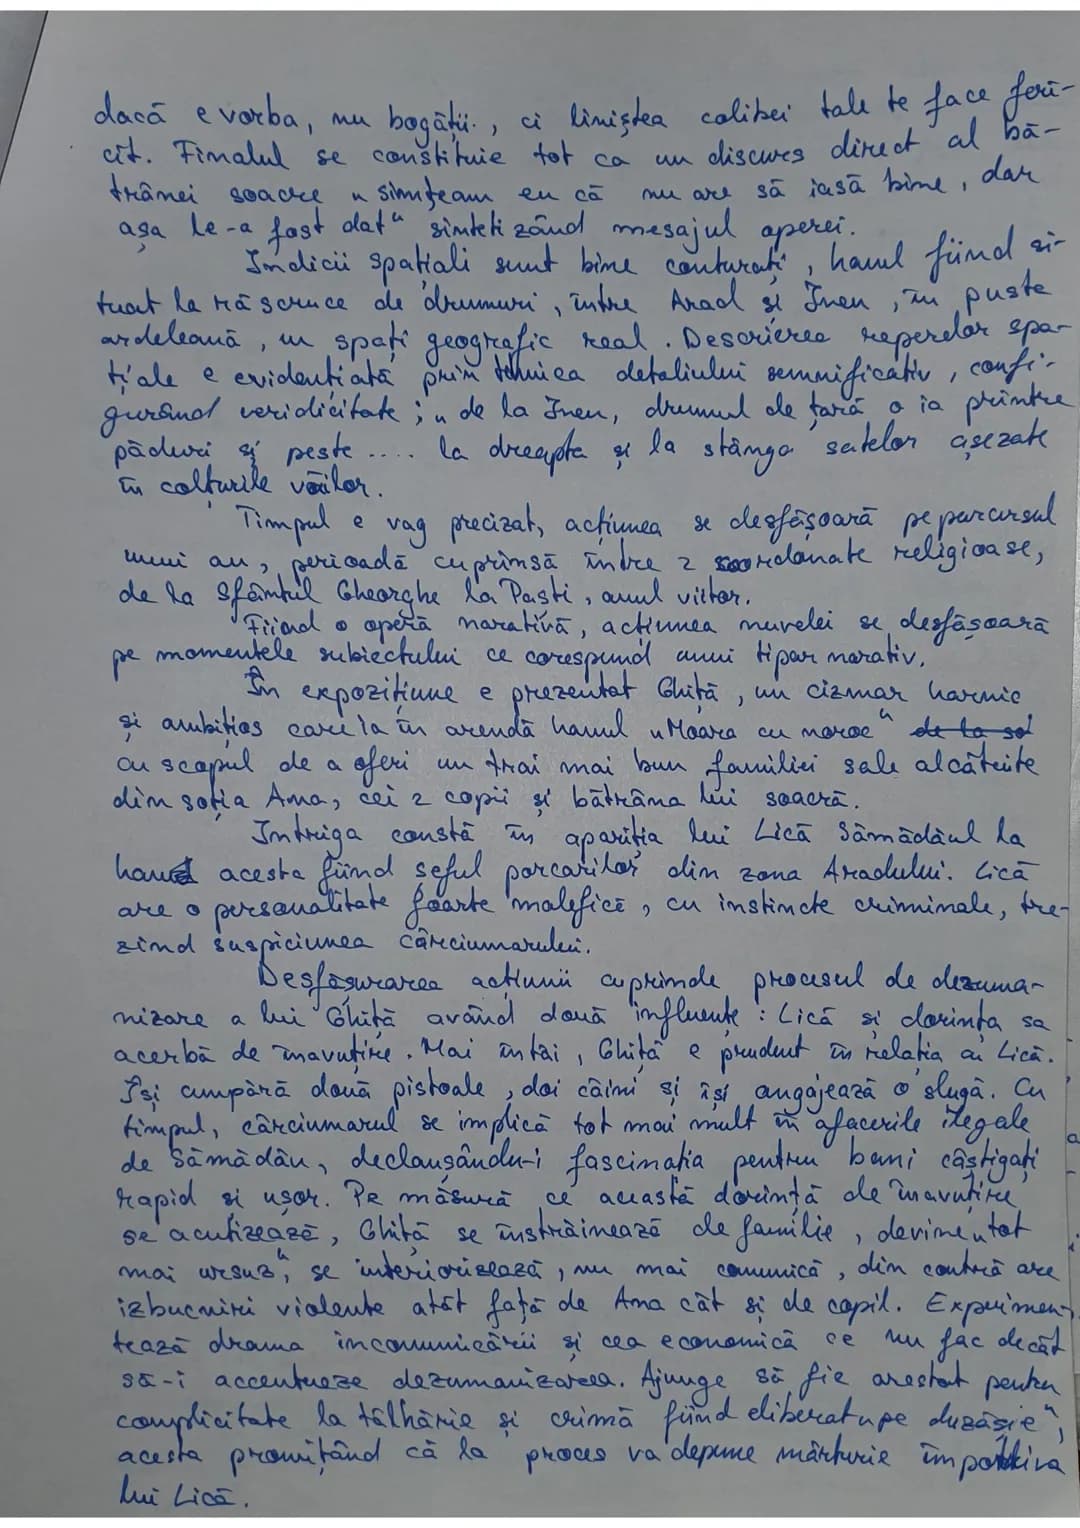 dacă e vorba, nu bogății., ci liniștea colibei tale te face feri-
cit. Finalul se constituie tot ca un discurs direct al bă-
trânei soacre „simțeam eu că nu are să iasă bine, dar
așa le-a fost dat" sintetizând mesajul operei.
Indicii spațiali sunt bine conturați, hanul fiind si-
tuat la răscruce de drumuri, între Arad și Ineu, în pusta
ardeleană, un spați geografic real. Descrierea reperelor spa-
țiale e evidențiată prin tehnica detaliului semnificativ, confi-
gurând veridicitate; „de la Ineu, drumul de țară o ia printre
păduri și peste .... la dreapta și la stânga satelor așezate
în colțurile văilor.
Timpul e vag precizat, acțiunea se desfășoară pe parcursul
unui an, perioadă cuprinsă între 2 coordonate religioase,
de la Sfântul Gheorghe la Paști, anul viitor.
Fiind o operă narativă, acțiunea nuvelei se desfășoară
pe momentele subiectului ce corespund unui tipar narativ.
În expozițiune e prezentat Ghiță, un cizmar harnic
și ambițios care ia în arendă hanul „Moara cu noroc" de la so
cu scopul de a oferi un trai mai bun familiei sale alcătuite
din soția Ana, cei 2 copii și bătrâna lui soacră.
Intriga constă în apariția lui Lică Sămădăul la
han acesta fiind șeful porcarilor din zona Aradului. Lică
are o personalitate foarte malefică, cu instincte criminale, tre-
zind suspiciunea cârciumarului.
Desfășurarea acțiunii cuprinde procesul de dezuma-
nizare a lui Ghiță având două influențe: Lică și dorința sa
acerbă de înavuțire. Mai întâi, Ghiță e prudent în relația cu Lică.
Își cumpără două pistoale, doi câini și își angajează o slugă. Cu
timpul, cârciumarul se implică tot mai mult în afacerile ilegale
de Sămădău, declanșându-i fascinația pentru bani câștigați
rapid și ușor. Pe măsură ce această dorință de înavuțire
se acutizează, Ghiță se înstrăinează de familie, devine „tot
mai ursuz", se interiorizează, nu mai comunică, din contră are
izbucniri violente atât față de Ana cât și de copil. Experimen-
tează drama incomunicării și cea economică ce nu fac decât
să-i accentueze dezumanizarea. Ajunge să fie arestat pentru
complicitate la tâlhărie și crimă fiind eliberat „pe duzăsie",
acesta promițând că la proces va depune mărturie împotriva
lui Lică.